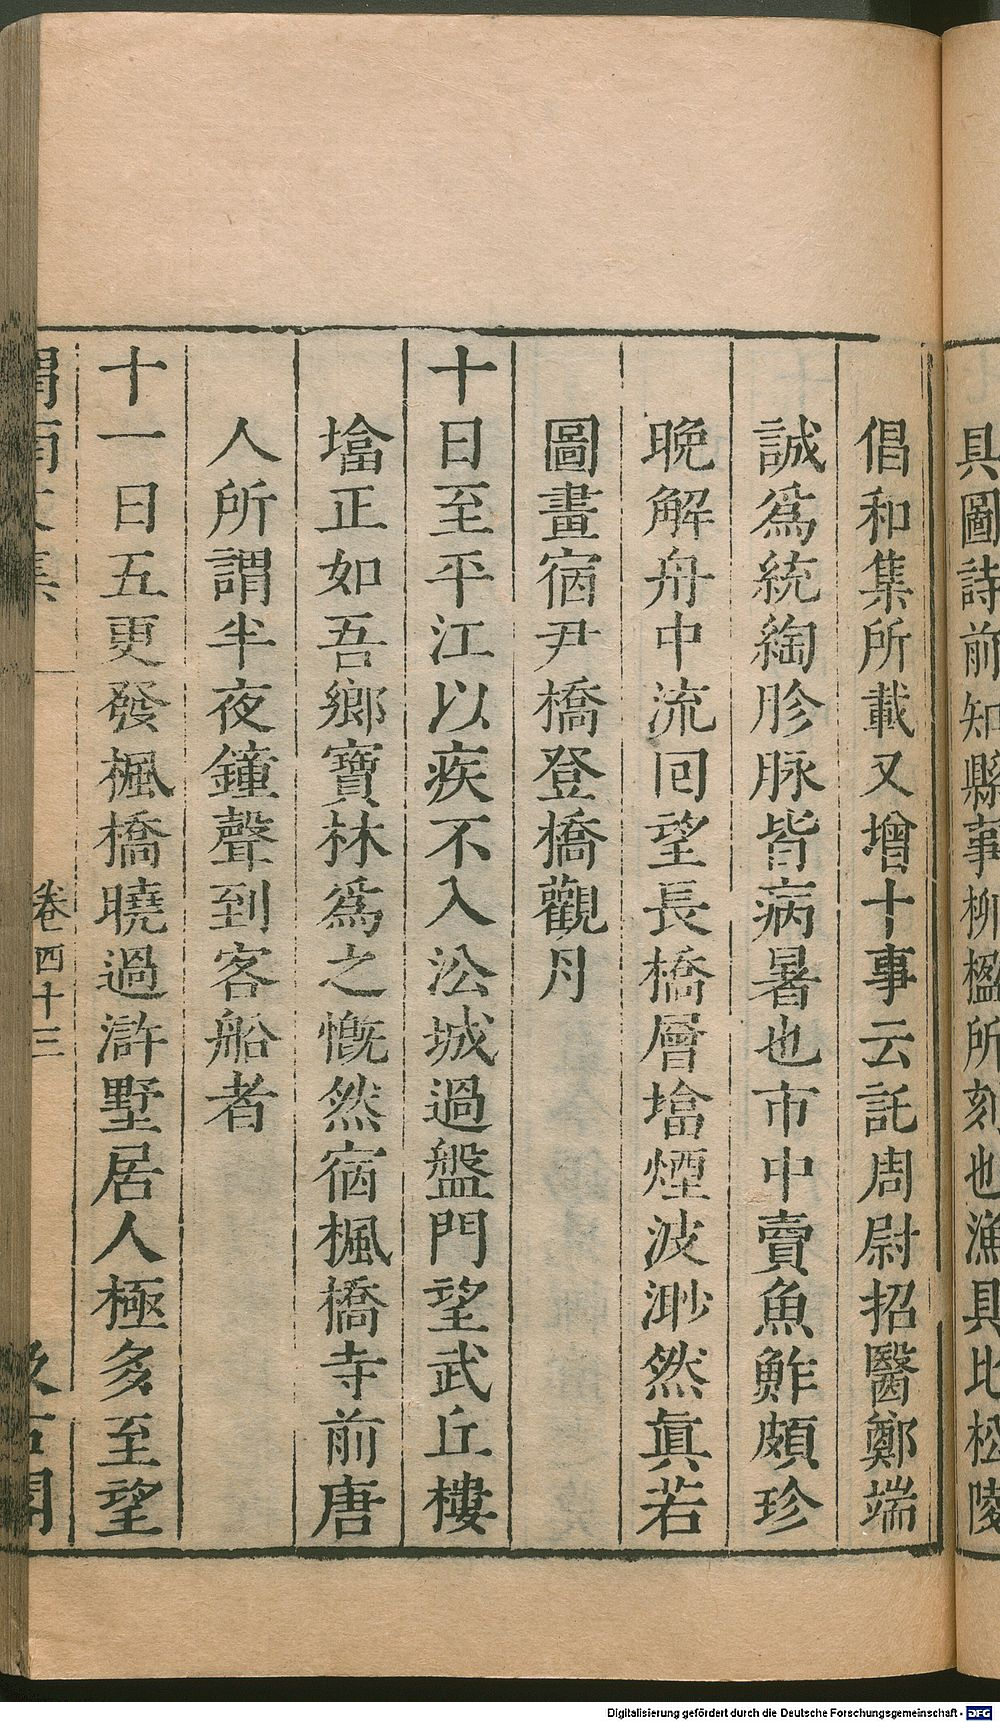 具圖詩前知縣事柳楹所刻也漁具比松陵
倡和集所載又增十事云託周尉招醫鄭端
誠爲統綯胗脉皆病暑也市中賣魚鮓頗珍
晚解舟中流回望長橋層墖煙波渺然眞若
圖畫宿尹橋登橋觀月
十日至平江以疾不入㳂城過盤門望武丘樓
墖正如吾鄉寶林爲之慨然宿楓橋寺前唐
人所謂半夜鐘聲到客船者
十一日五更發楓橋曉過滸墅居人極多至望
渭南文集
卷四十三
汲古閣
Digitalisierung gefördert durch die Deutsche Forschungsgemeinschaft - DFG